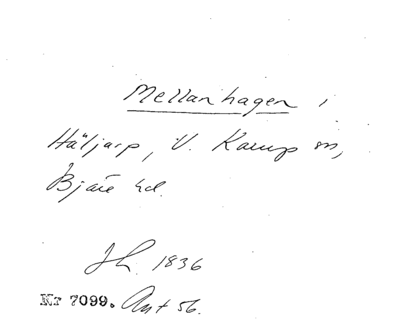 Mellanhagen i
Häljarp, V. Karup sn,
Bjäre hd.
Jh. 1836
Nr 7099. Ant 56.